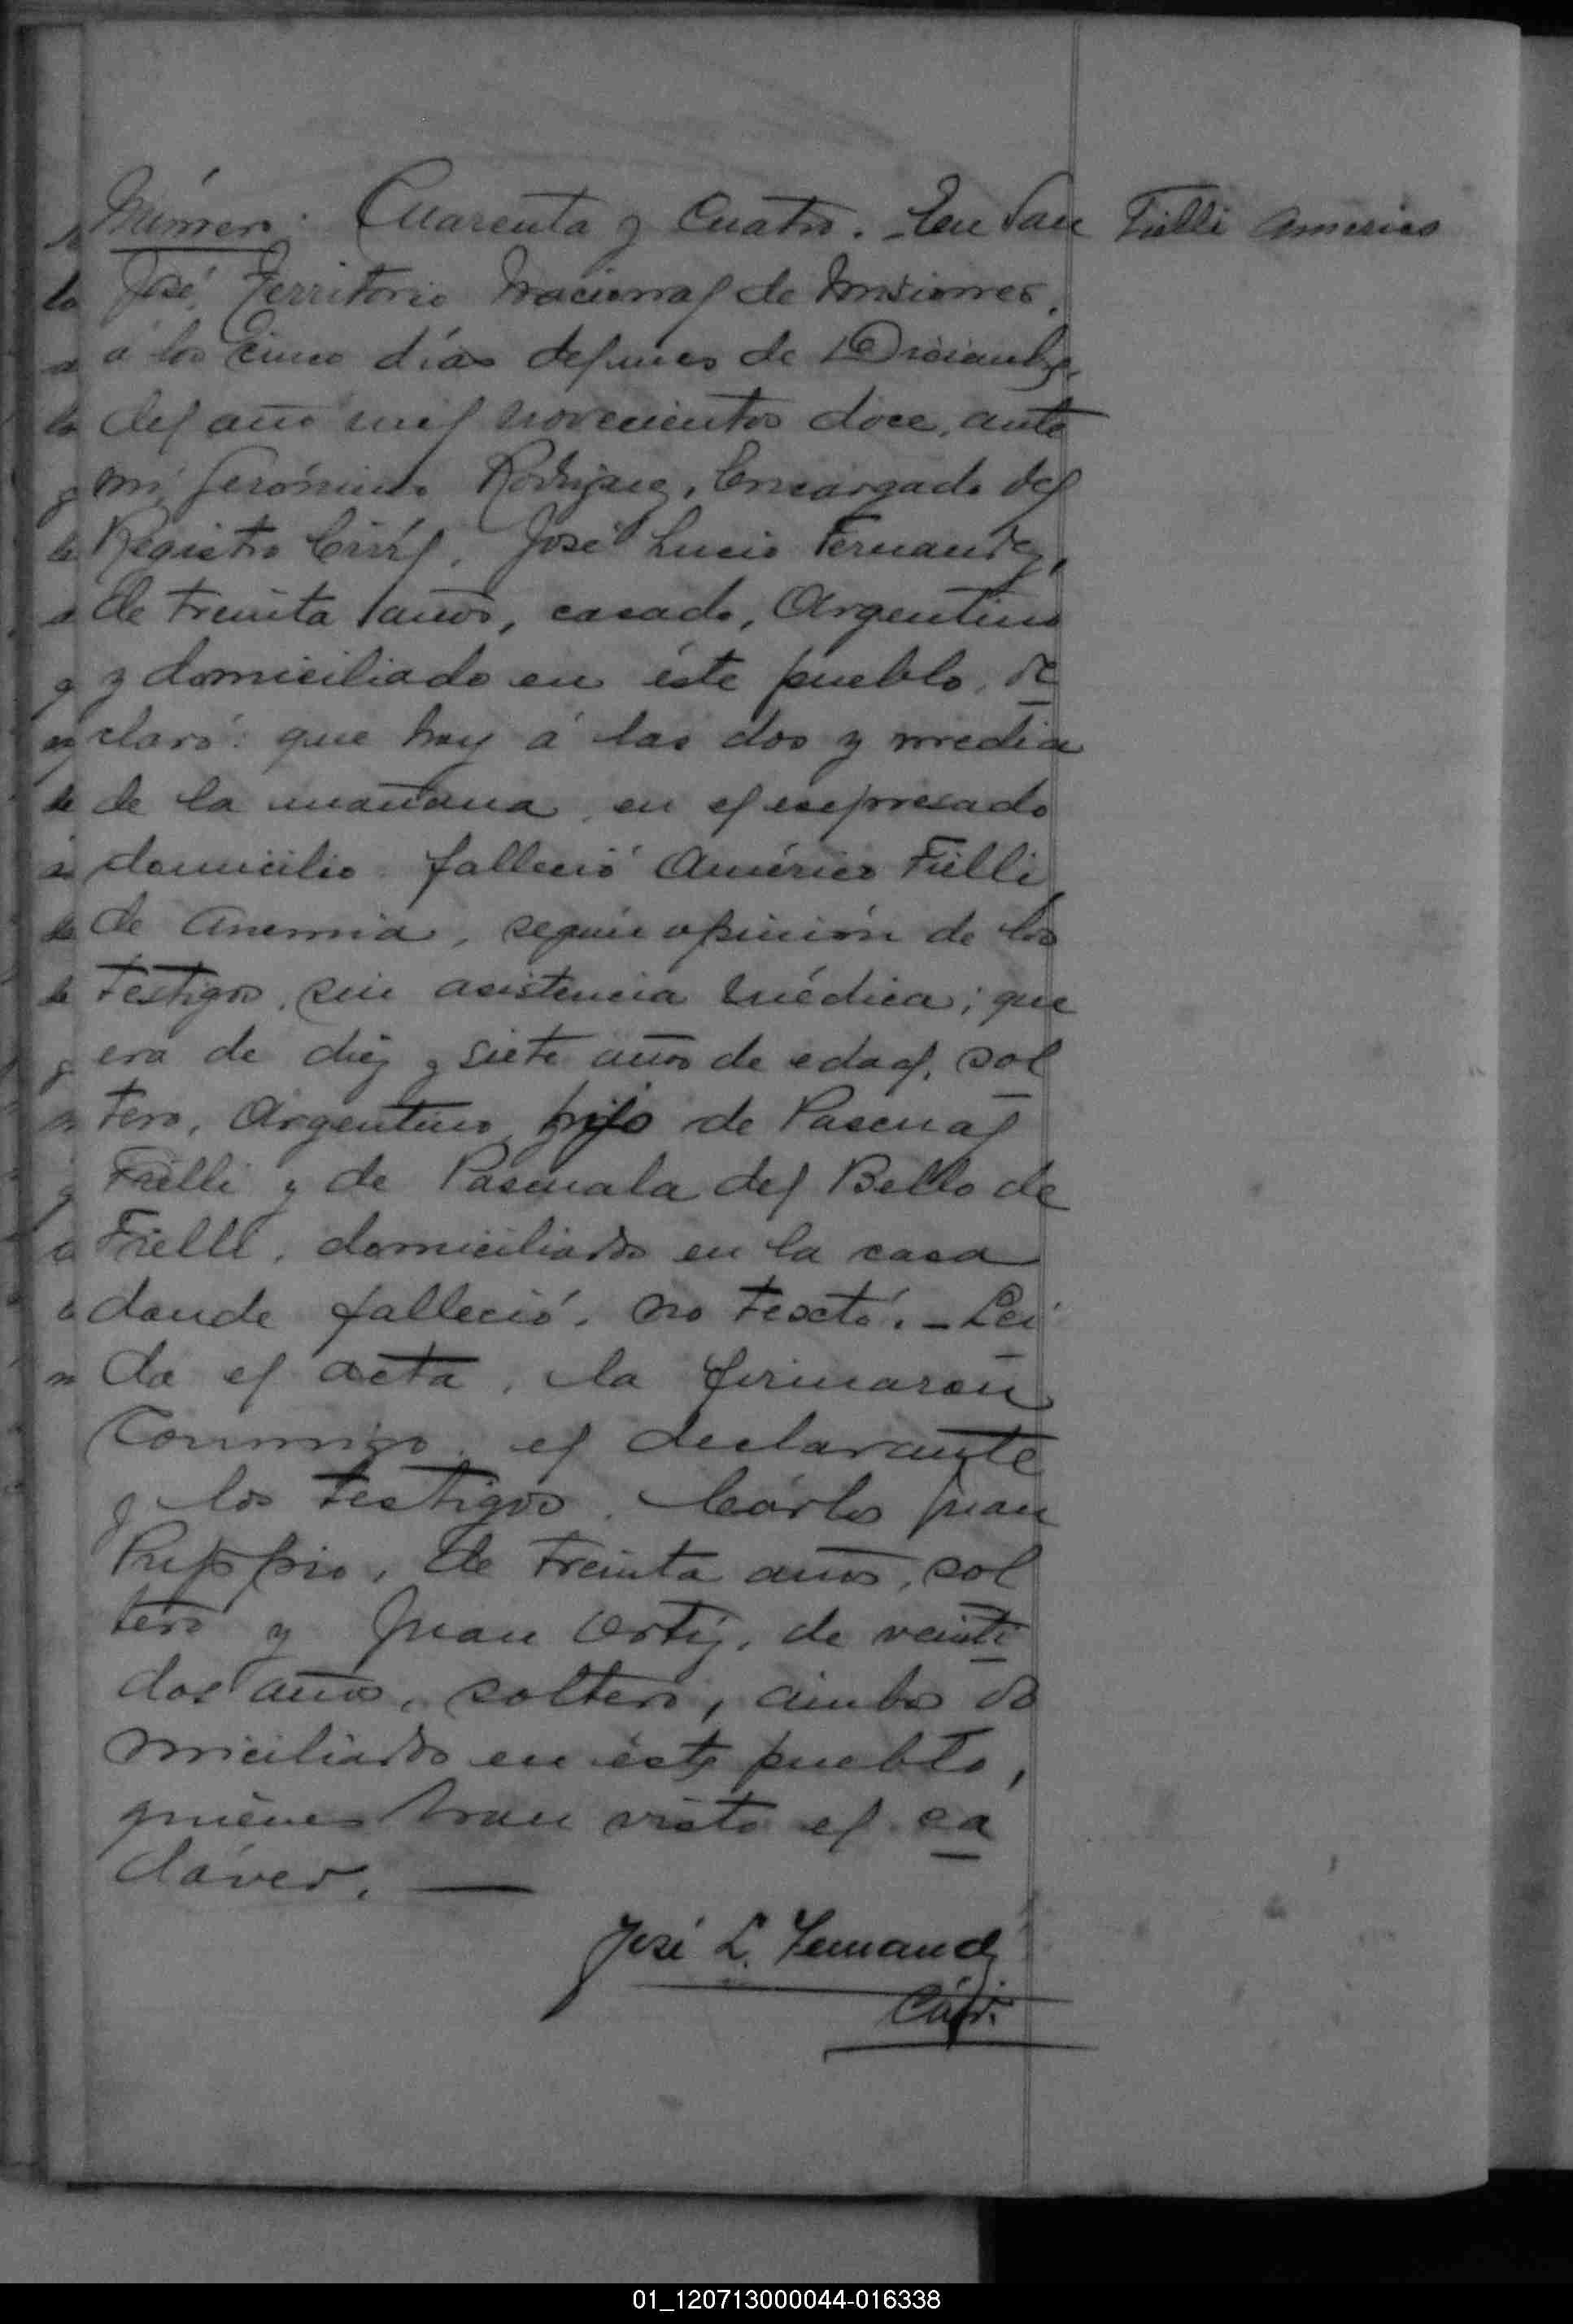 Número: Cuarenta y Cuatro. – En San
Fielli Americo
José, Territorio Nacional de Misiones,
á los Cinco días del mes de Diciembre,
del año mil novecientos doce, ante
mí, Gerónimo Rodriguez, Encargado del
Registro Civil, José Lucio Fernandez,
de treinta años, casado, Argentino
y domiciliado en éste pueblo, de
claró: que hoy á las dos y media
de la mañana, en el expresado
domicilio falleció Américo Fielli
de Anemia, según opinión de los
testigos, sin asistencia médica; que
era de diez y siete años de edad, sol
tero, Argentino, hijo de Pascual
Fielli y de Pascuala del Bello de
Fielli, domiciliados en la casa
donde falleció, no testó. – Leí
da el acta, la firmaron
conmigo, el declarante
y los testigos, Cárlos Juan
Puppio, de treinta años, sol
tero y Juan Ortiz, de veinti
dos años, soltero, ámbos do
miciliados en éste pueblo,
quiénes han visto el ca
dáver. —
José L. Fernandz
01_120713000044-016338